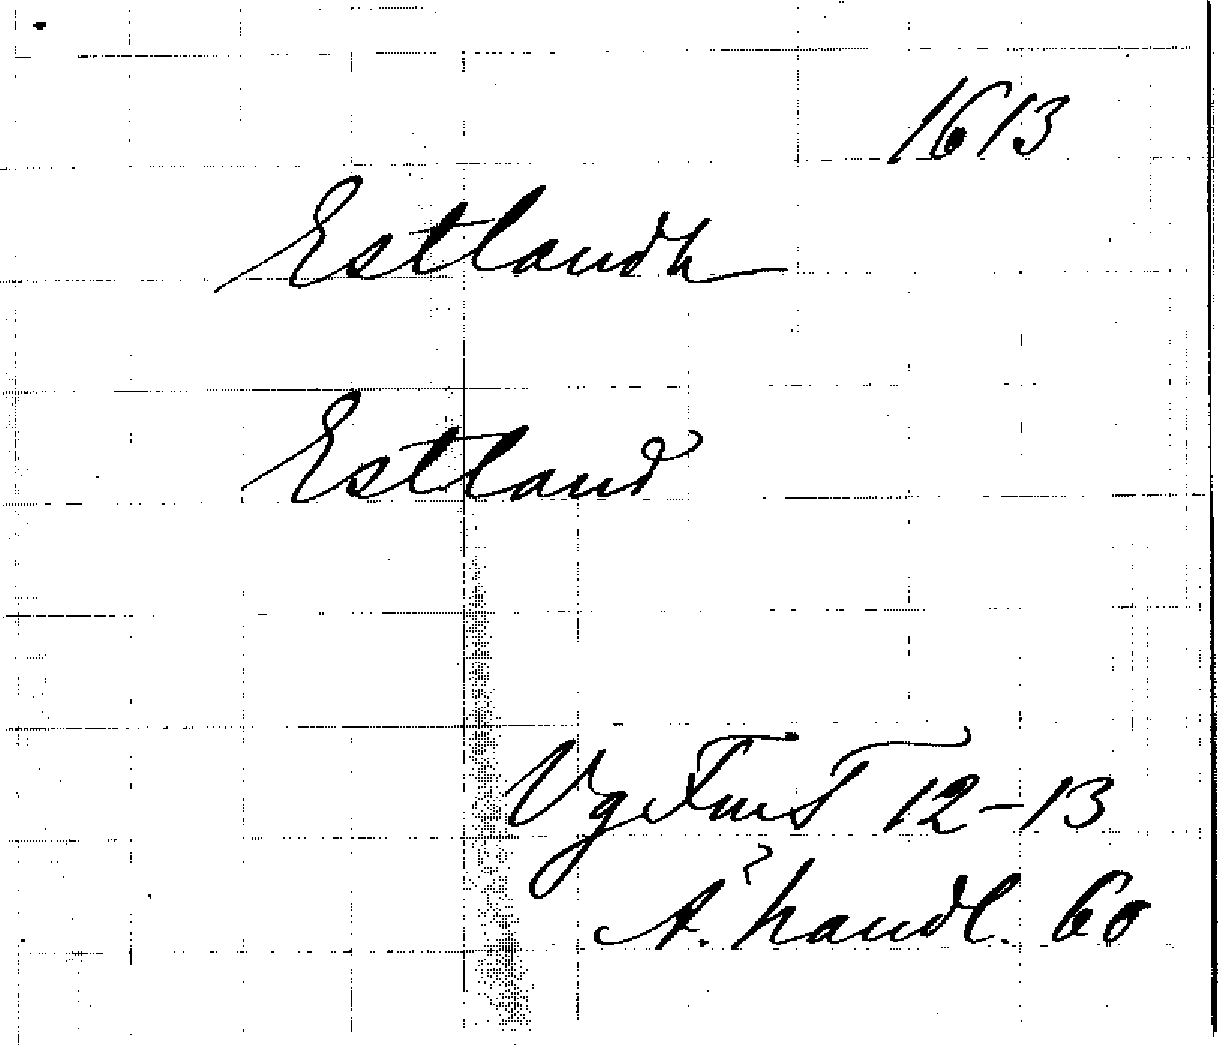 1613
Estlandh
Estland
VgFmT 12-13
A. handl. 60